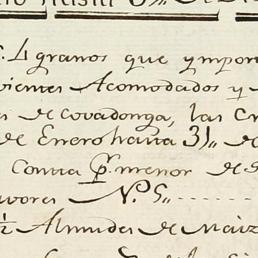 4 granos que ympor
vientes Acomodados y
de Covadonga, las Cr
de Enero hasta 31,, de
Contra Pr. menor de S
avores Nº 5,,
½ Almudes de Maiz